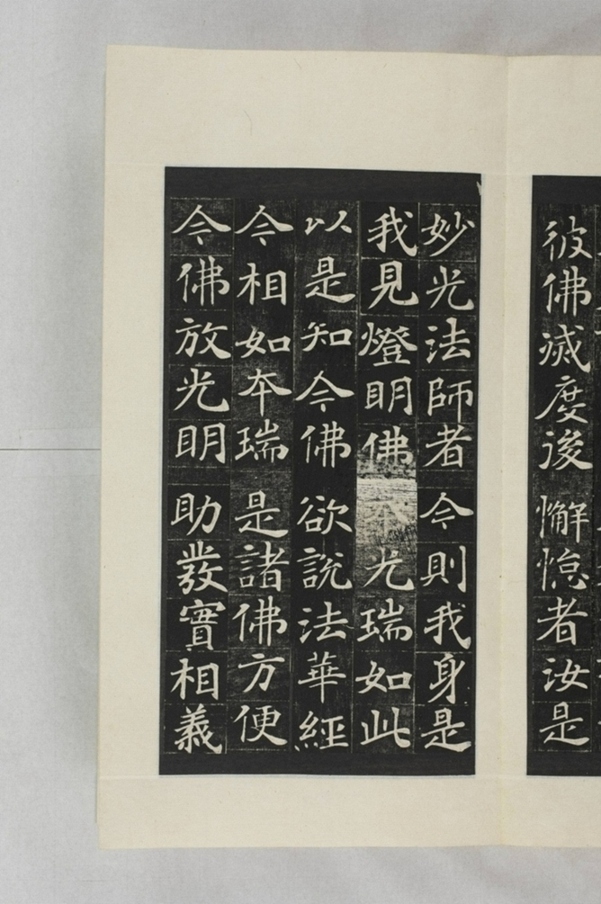 彼佛滅度後懈怠者汝是
妙光法師者今則我身是
我見燈明佛光瑞如此
以是知今佛欲說法華經
今相如夲瑞是諸佛方便
今佛放光明助發實相義